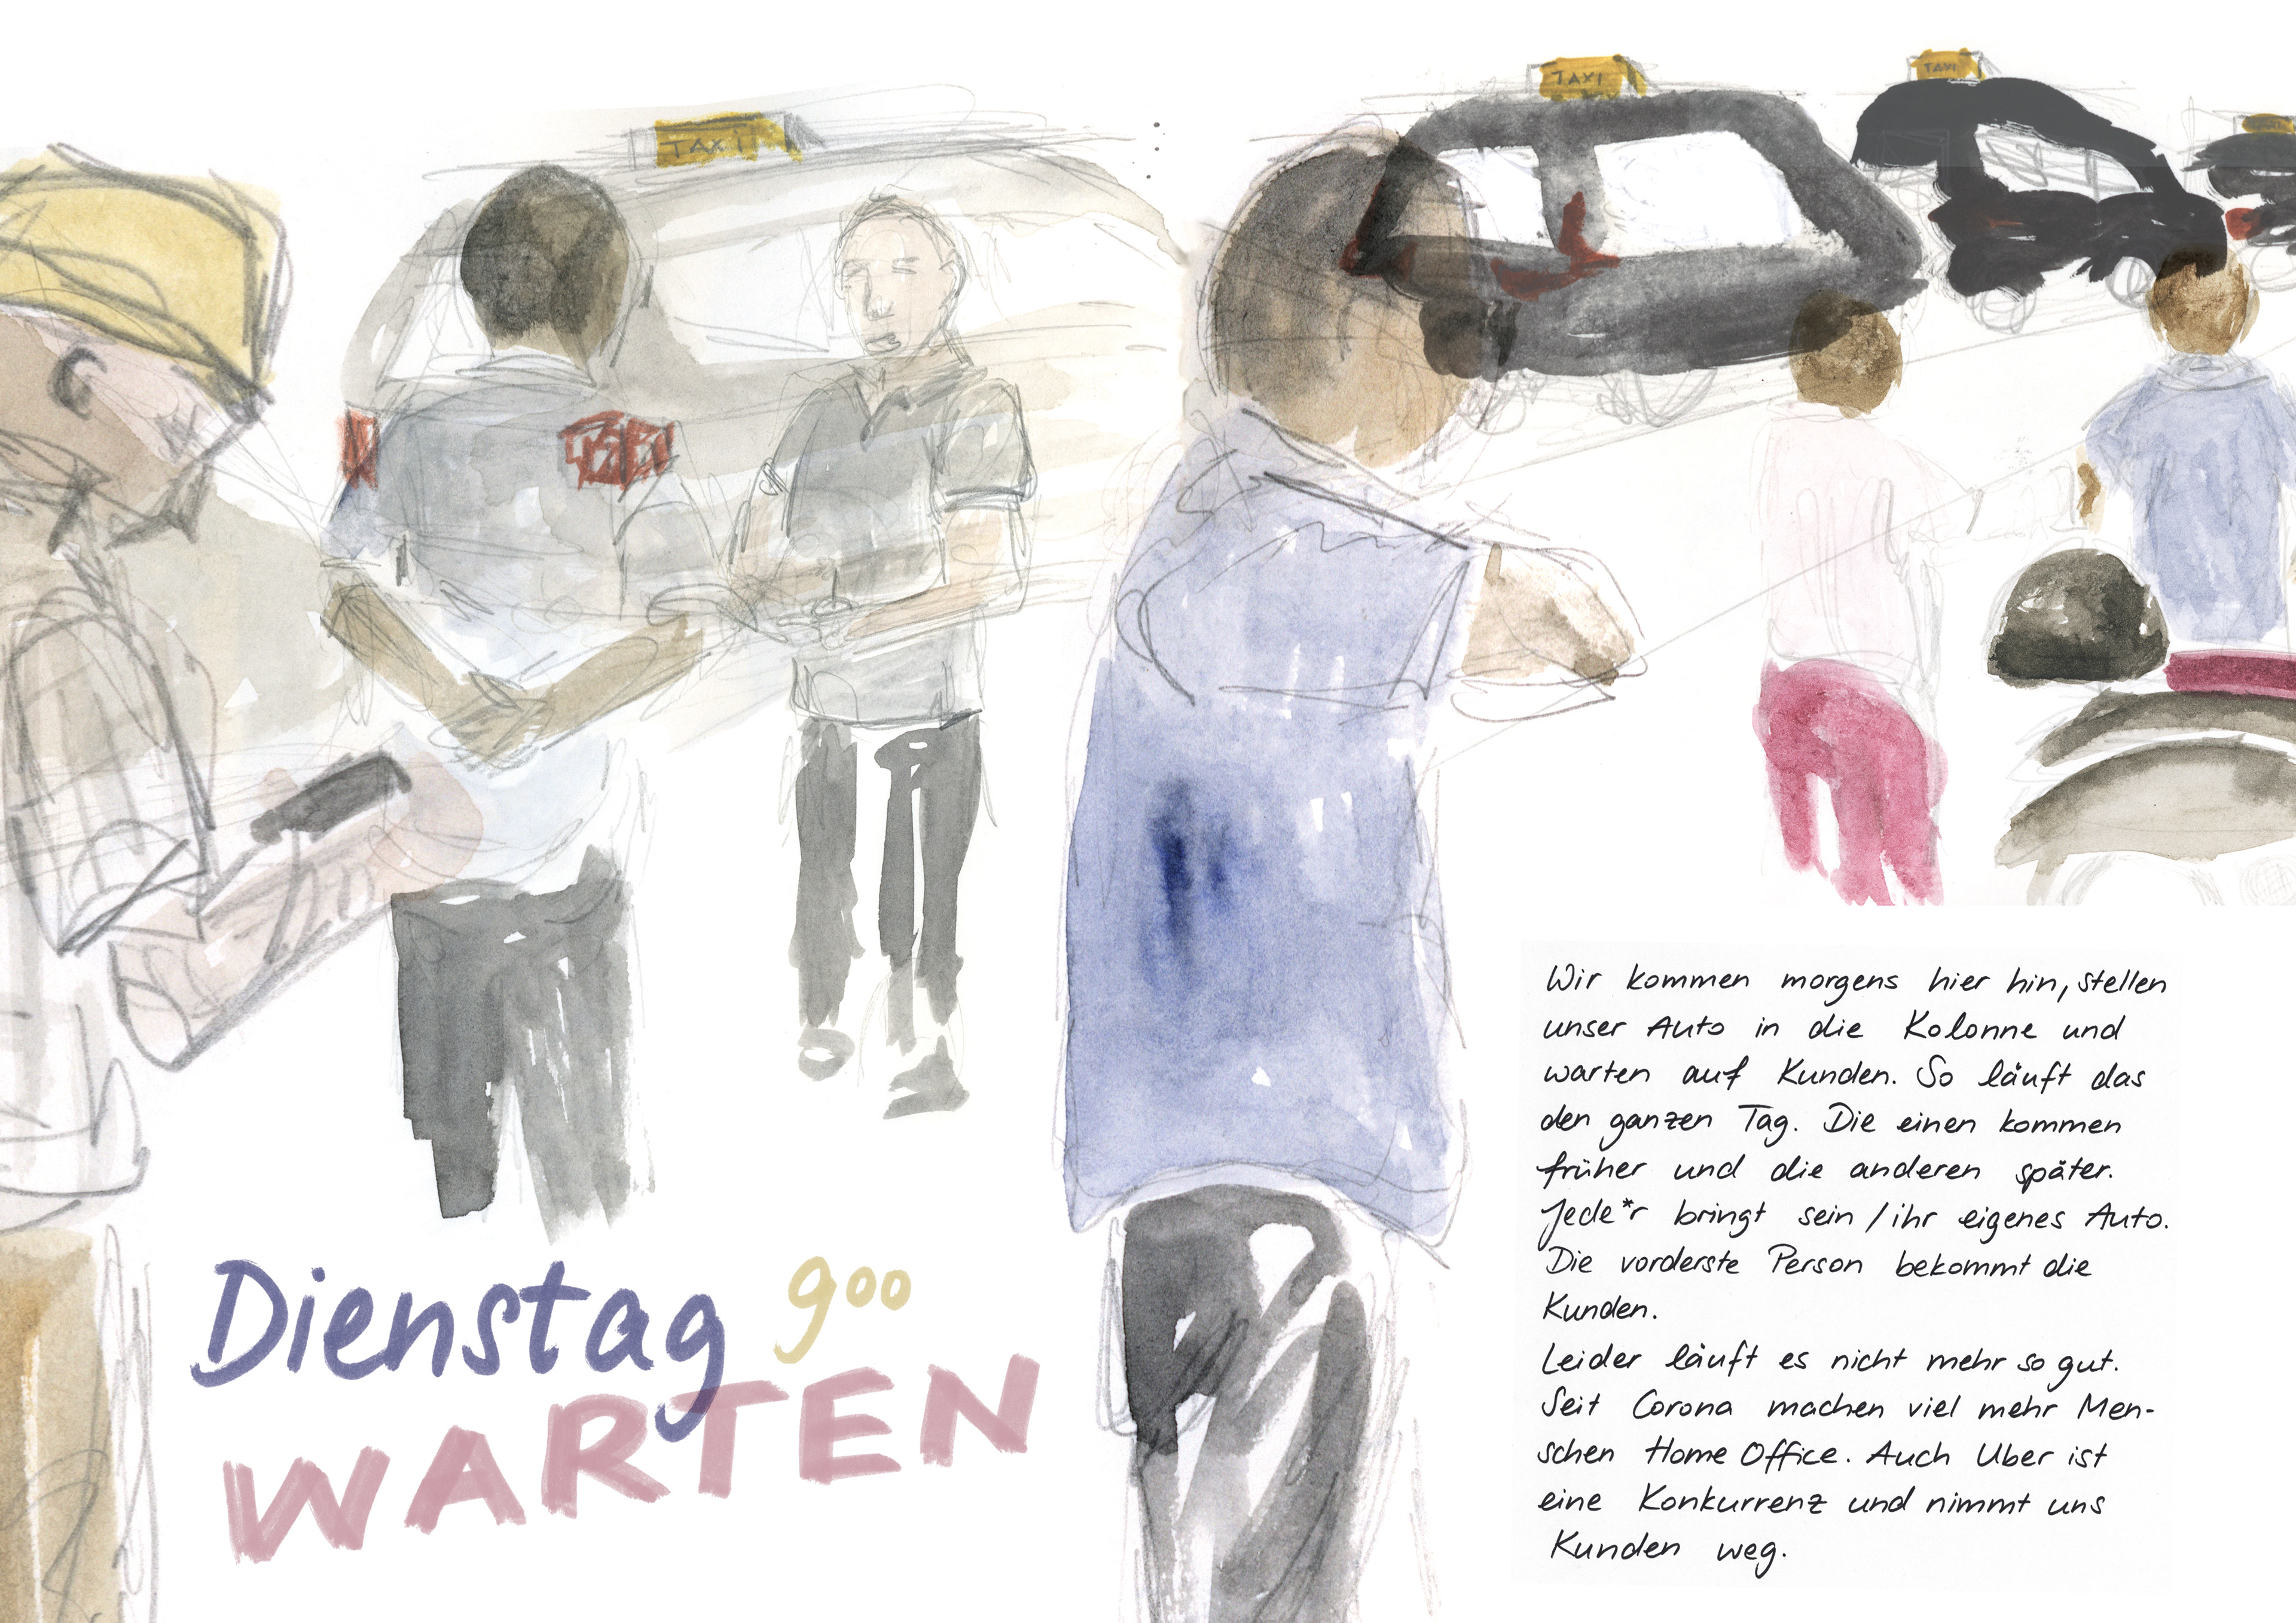 TAXI
TAXI
TAXI
Dienstag 9⁰⁰
WARTEN
Wir kommen morgens hier hin, stellen
unser Auto in die Kolonne und
warten auf Kunden. So läuft das
den ganzen Tag. Die einen kommen
früher und die anderen später.
Jede*r bringt sein / ihr eigenes Auto.
Die vorderste Person bekommt die
Kunden.
Leider läuft es nicht mehr so gut.
Seit Corona machen viel mehr Men-
schen Home Office. Auch Uber ist
eine Konkurrenz und nimmt uns
Kunden weg.